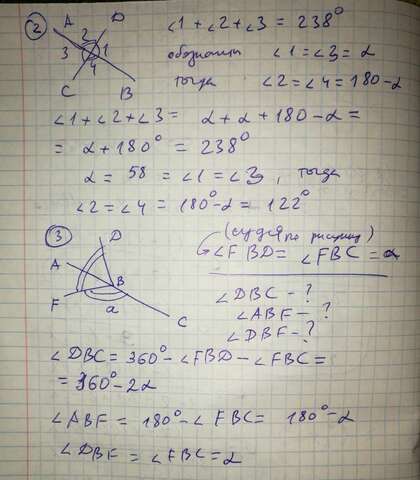 2
A D
2
3 1
4
C B
∠1 + ∠2 + ∠3 = 238°
обозначим ∠1 = ∠3 = α
тогда ∠2 = ∠4 = 180 - α
∠1 + ∠2 + ∠3 = α + α + 180 - α =
= α + 180° = 238°
α = 58 = ∠1 = ∠3, тогда
∠2 = ∠4 = 180° - α = 122°
3
D
A
B
F
a
C
(судя по рисунку)
∠FBD = ∠FBC = α
∠DBC - ?
∠ABF - ?
∠DBF - ?
∠DBC = 360° - ∠FBD - ∠FBC =
= 360° - 2α
∠ABF = 180° - ∠FBC = 180° - α
∠DBF = ∠FBC = α